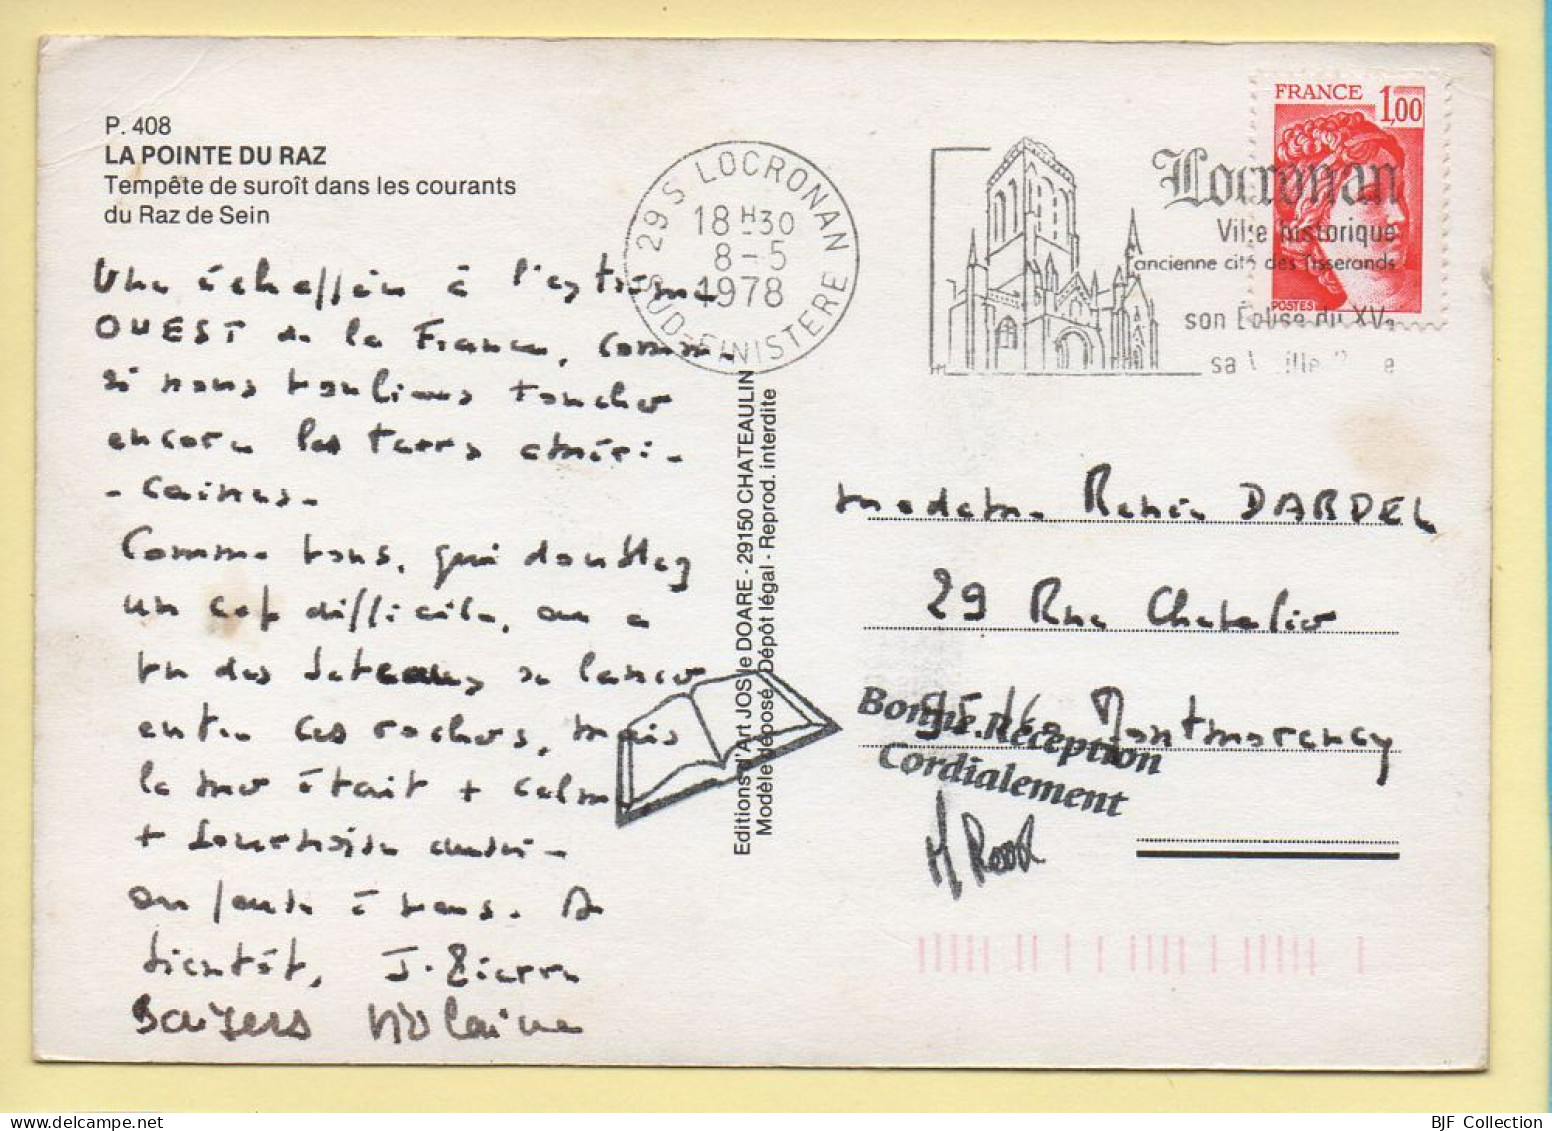 P. 408
LA POINTE DU RAZ
Tempête de suroît dans les courants
du Raz de Sein
Une échappée à l'extrême
OUEST de la France, comme
si nous voulions toucher
encore les terres améri-
- caines.
Comme vous, qui doublez
un cap difficile, on a
vu des bateaux se lancer
entre ces rochers, mais
la mer était + calme
+ souveraine aussi -
on pense à vous. A
bientôt, J. Pierre
Baisers
29 S LOCRONAN
18 H 30
8 - 5
1978
SUD-FINISTERE
Locronan
Ville historique
ancienne cité des Tisserands
son Eglise du XVe
sa Vieille Place
FRANCE 1,00
POSTES
Editions d'Art JOS le DOARE - 29150 CHATEAULIN
Modèle déposé. Dépôt légal - Reprod. interdite
Madame Renée DARDEL
29 Rue Chatelier
95160 Montmorency
Bonne Réception
Cordialement
BJF Collection